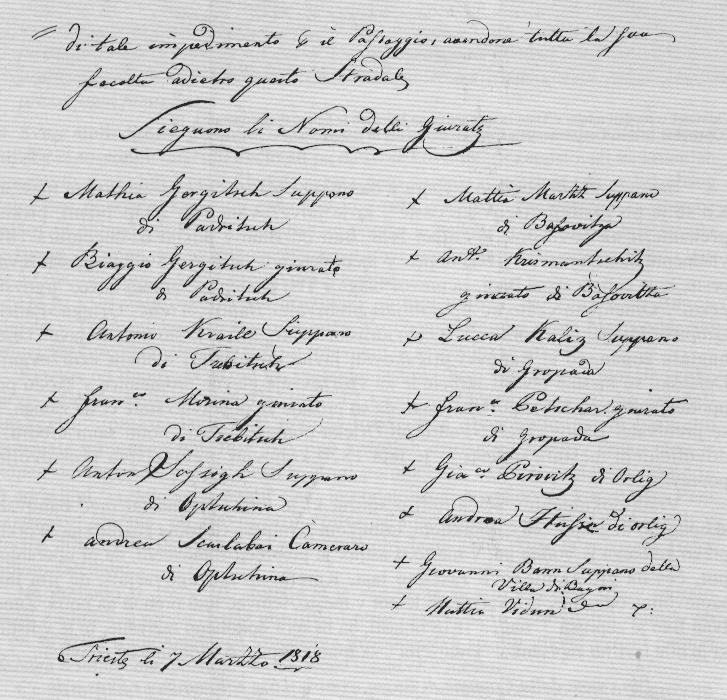 di tale impedimento è il Passaggio, avendone tutta la sua
facoltà adietro questo Stradale
Sieguono li Nomi delli Giurati
+ Mathia Gergitsch Suppano
di Padritsch
+ Biaggio Gergitsch giurato
di Padritsch
+ Antonio Kraile Suppano
di Trebitsch
+ Fran.co Morina giurato
di Trebitsch
+ Anton Sossigh Suppano
di Optschina
+ Andrea Scarlabai Cameraro
di Optschina
+ Mattia Martz Suppano
di Basovitza
+ Ant.o Krismantschitz
giurato di Basovitza
+ Lucca Kaliz Suppano
di Gropada
+ Fran.co Petschar giurato
di Gropada
+ Gia.co Pirovitz di Orlig
+ Andrea di Orlig
+ Giovanni Bann Suppano della
Villa di Bagni
+ Mattia Vidau
Trieste li 7 Marzzo 1818